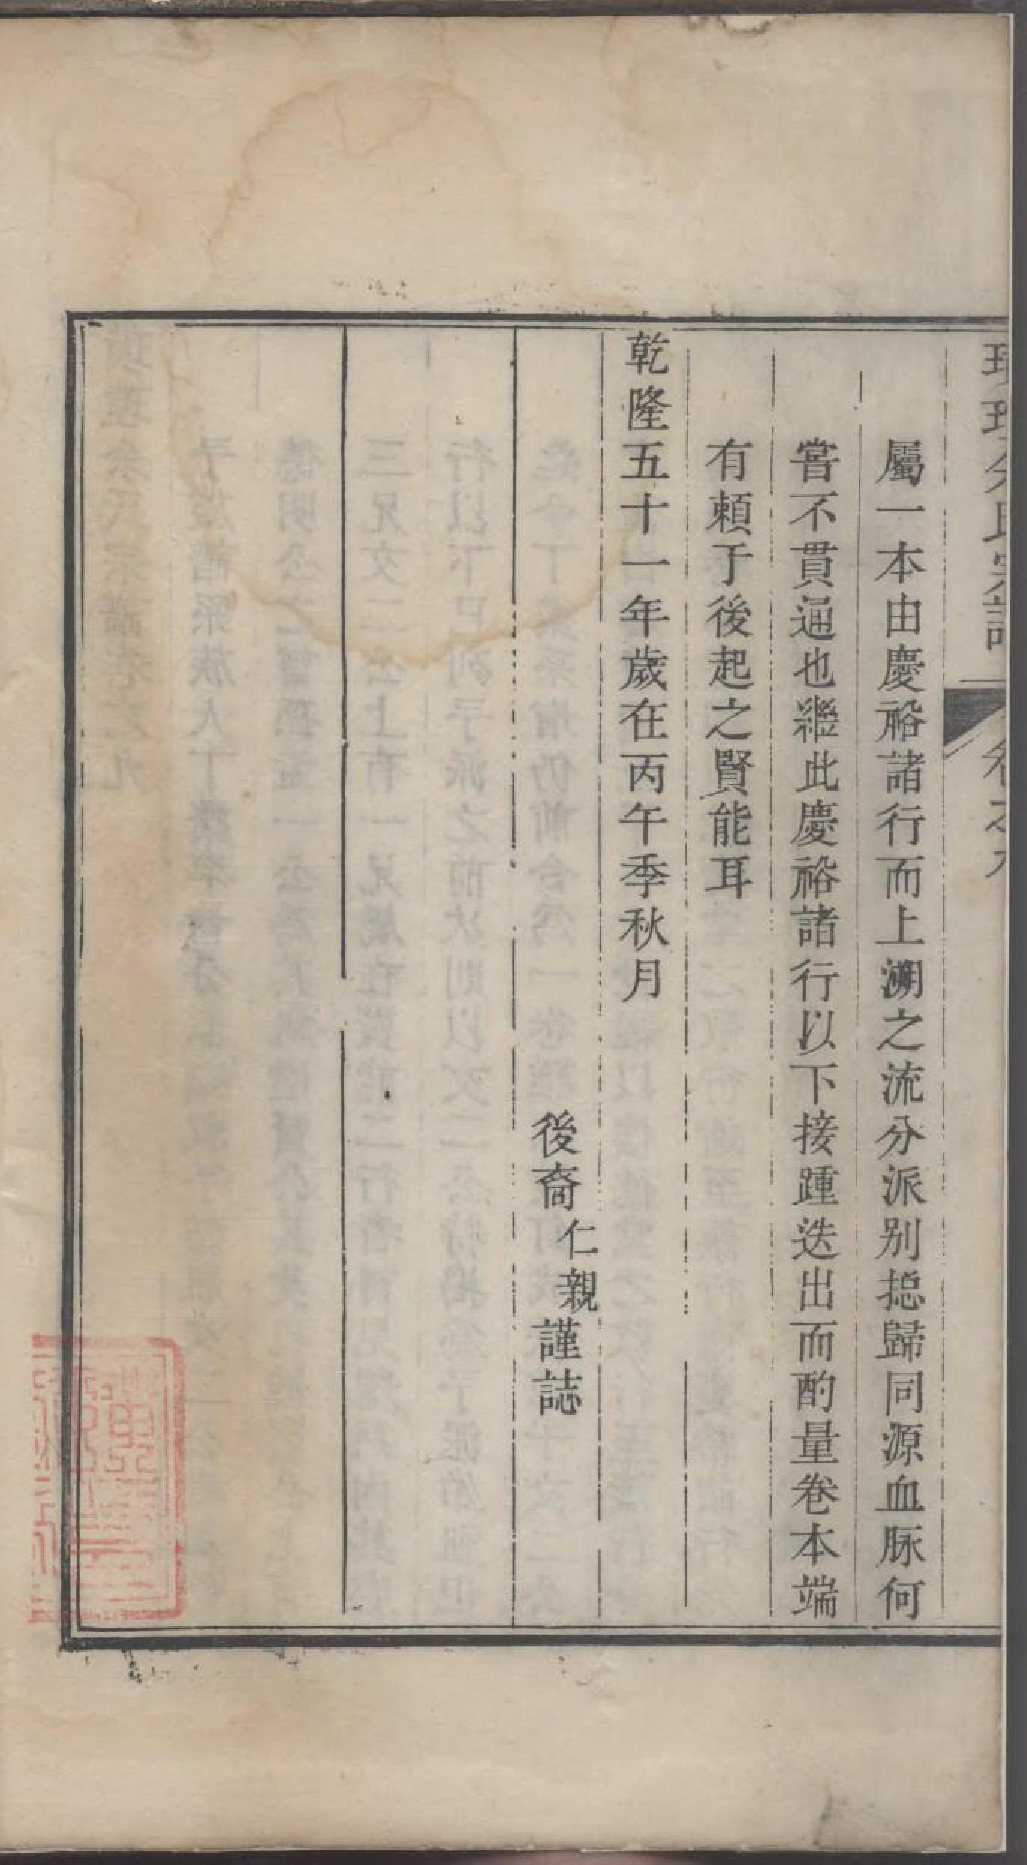 屬一本由慶裕諸行而上溯之流分派别揔歸同源血脉何
甞不貫通也繼此慶裕諸行以下接踵迭出而酌量卷本端
有頼于後起之賢能耳
乾隆五十一年歲在丙午季秋月
後裔仁親謹誌